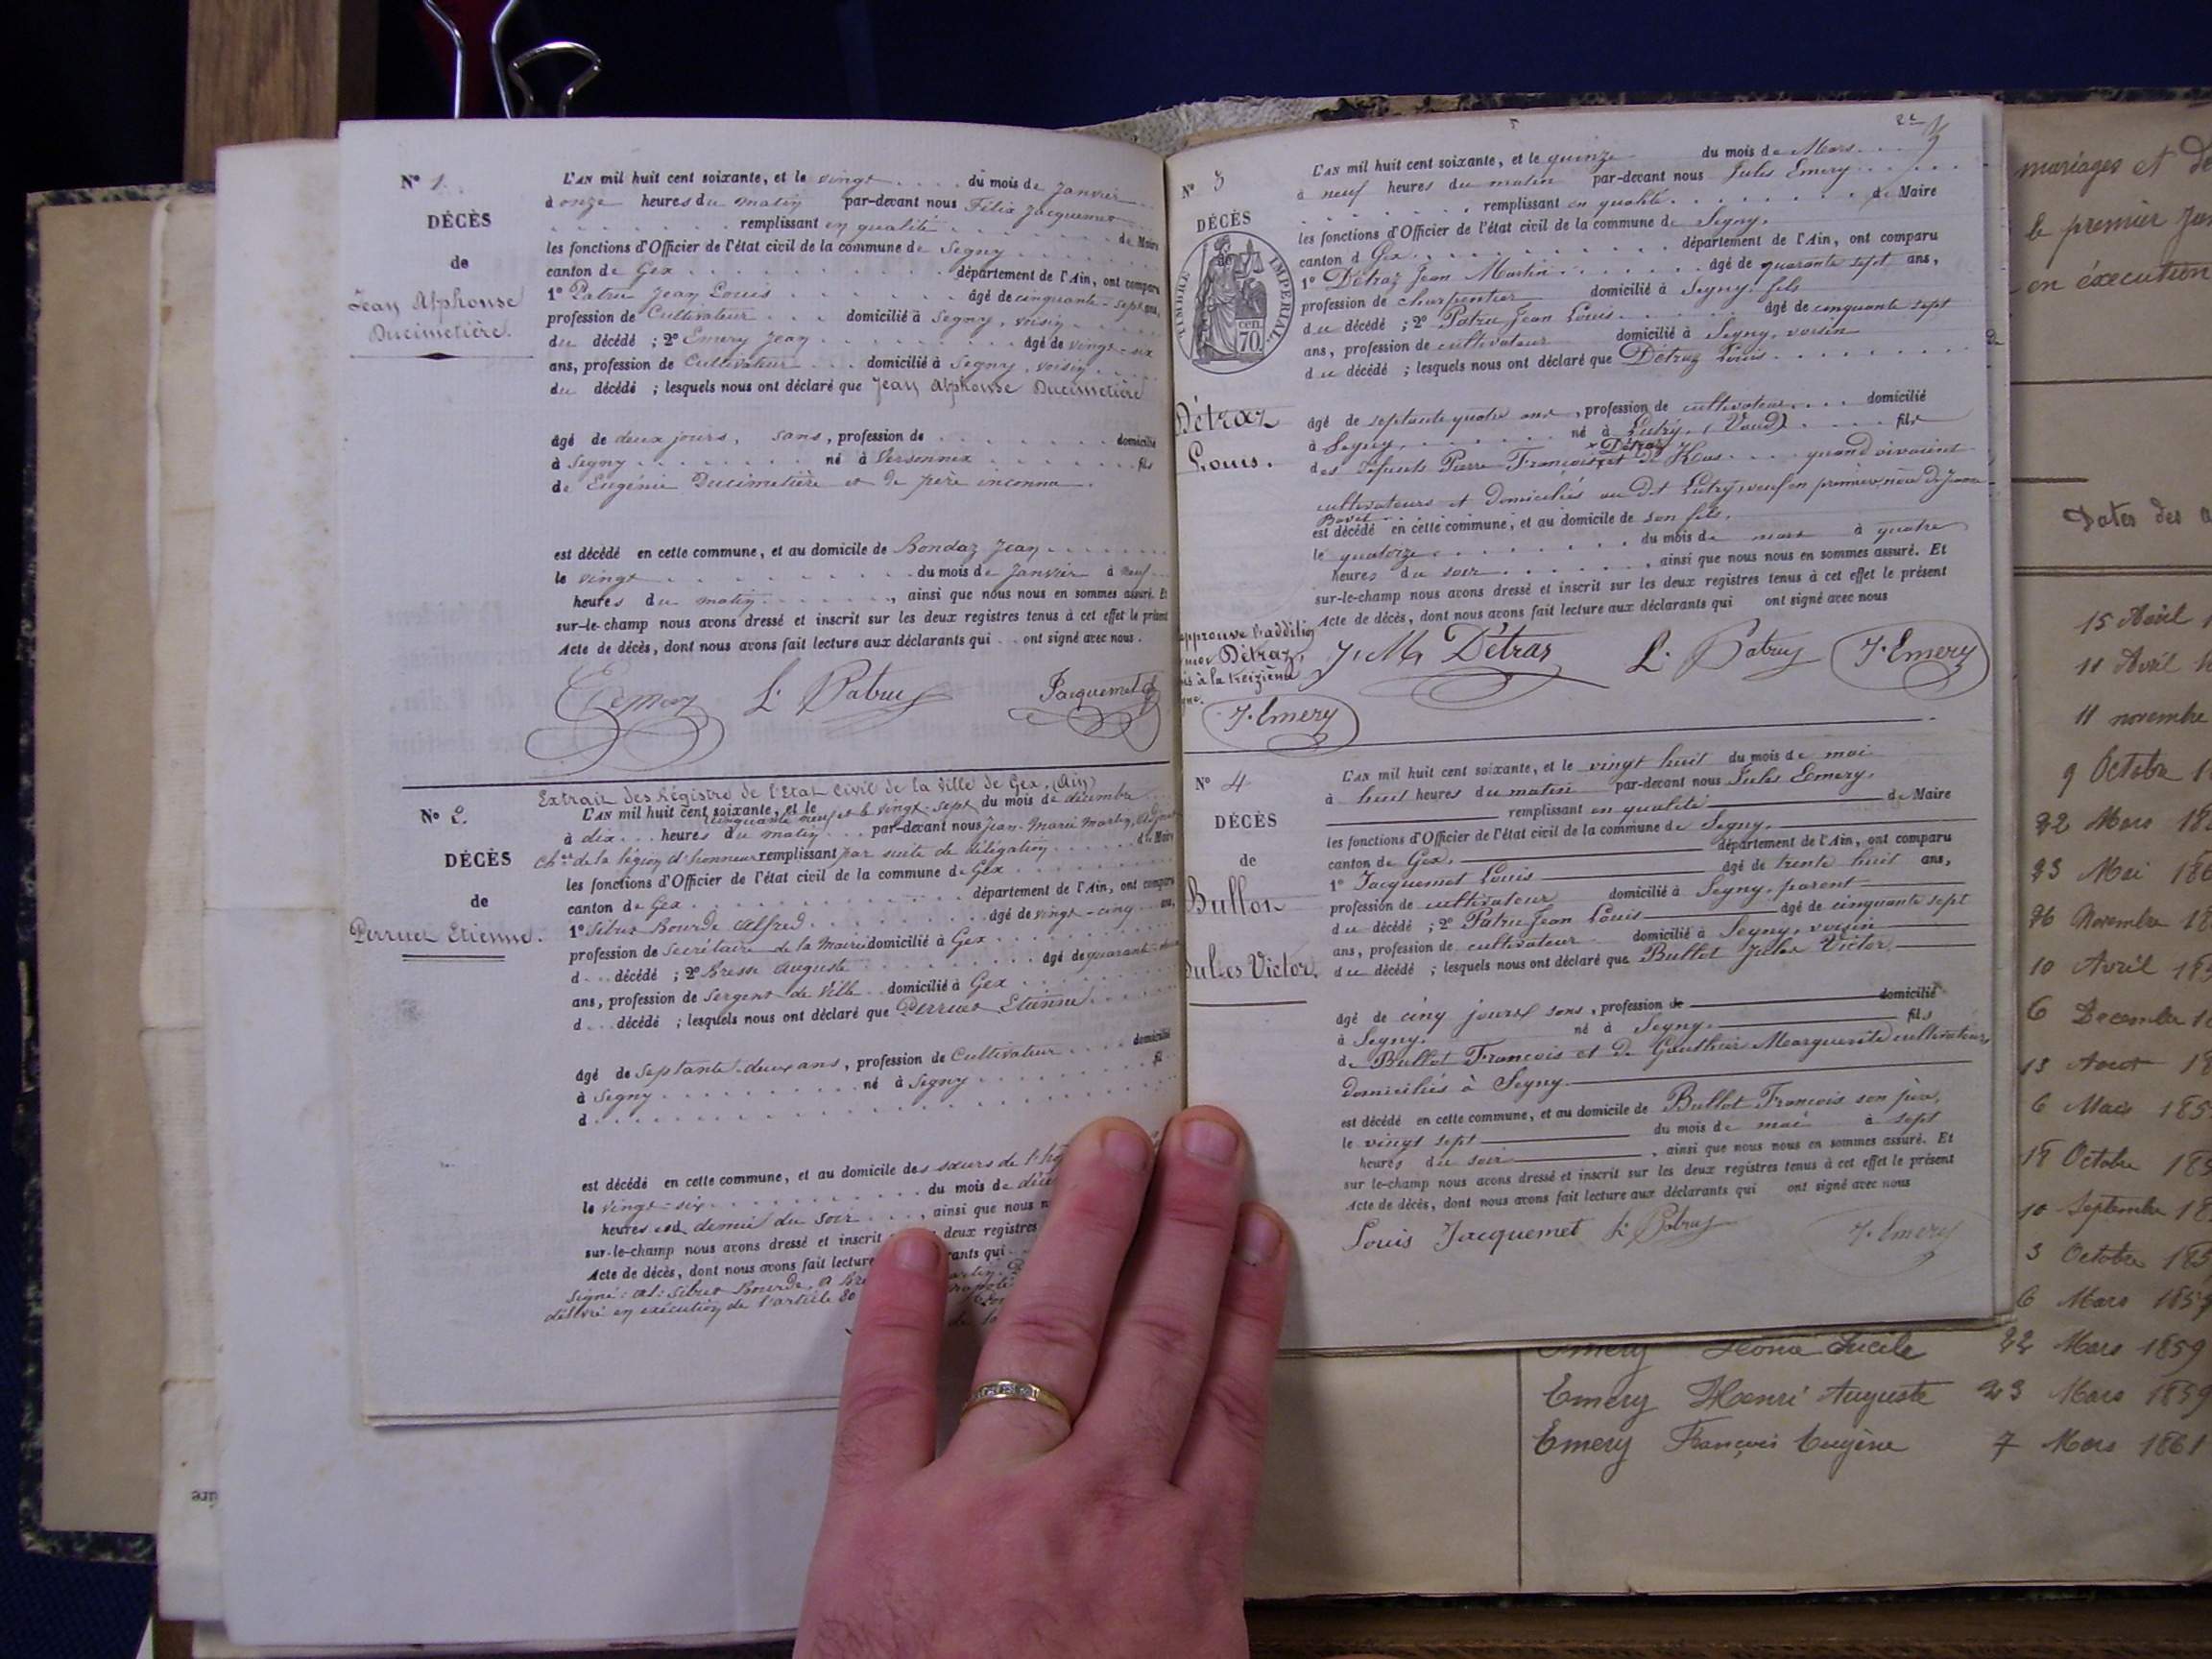 N° 1.
DÉCÈS
de
Jean Alphonse
Ducimetière.
L'AN mil huit cent soixante, et le vingt . . . . du mois de Janvier . .
à onze heures du matin par-devant nous Félix Jacquemet
. . . . . . . . remplissant en qualité . . . . . . . . de Maire
les fonctions d'Officier de l'état civil de la commune de Segny . . . . . .
canton de Gex . . . . . . . . . . . département de l'Ain, ont comparu
1° Patru Jean Louis . . . . . . . âgé de cinquante-sept ans,
profession de Cultivateur . . . domicilié à Segny, voisin . . . .
du décédé ; 2° Emery Jean . . . . . . . . . âgé de vingt-six
ans, profession de Cultivateur . . . domicilié à Segny, voisin . . . .
du décédé ; lesquels nous ont déclaré que Jean Alphonse Ducimetière
âgé de deux jours, sans, profession de . . . . . . . . . domicilié
à Segny . . . . . . . . né à Versonnex . . . . . . . fils
de Eugénie Ducimetière et de père inconnu.
est décédé en cette commune, et au domicile de Bondaz Jean . . . . . .
le vingt . . . . . . . . . . . du mois de Janvier à neuf . .
heures du matin . . . . . . . , ainsi que nous nous en sommes assuré. Et
sur-le-champ nous avons dressé et inscrit sur les deux registres tenus à cet effet le présent
Acte de décès, dont nous avons fait lecture aux déclarants qui . . ont signé avec nous.
Emery L. Patru Jacquemet
Extrait des Régistre de l'Etat Civil de la Ville de Gex, (Ain)
N° 2.
DÉCÈS
de
Perruet Etienne.
L'AN mil huit cent soixante, et le
cinquante neuf et le vingt-sept du mois de décembre
à dix . . . heures du matin . . . par-devant nous Jean-Marie Martin, Adjoint
Ch.er de la légion d'honneur remplissant par suite de délégation . . . . . . du Maire
les fonctions d'Officier de l'état civil de la commune de Gex . . . . . . .
canton de Gex . . . . . . . . . . . . département de l'Ain, ont comparu
1° Sibus Bourde Alfred . . . . . . . . . âgé de vingt-cinq ans,
profession de Secrétaire de la Mairie domicilié à Gex . . . . . . . .
d . . . décédé ; 2° Bresse Auguste . . . . . . . . . âgé de quarante
ans, profession de Sergent de Ville . . domicilié à Gex . . . . . . .
d . . . décédé ; lesquels nous ont déclaré que Perruet Etienne . . . . .
âgé de septante-deux ans, profession de Cultivateur . . . . domicilié
à Segny . . . . . . . . . . né à Segny . . . . . . . . . fil
d . . . . . . . . . . . . . . . . . . . . .
est décédé en cette commune, et au domicile des sœurs de l'
le vingt-six . . . . . . . . . . . du mois de
heures et demie du soir . . . , ainsi que nous
sur-le-champ nous avons dressé et inscrit deux registres
Acte de décès, dont nous avons fait lecture
Signé: Al: Sibus Bourde, A
délivré en exécution de l'article 80
N° 3
DÉCÈS
de
TIMBRE IMPÉRIAL.
70 cen
Détraz
Louis.
L'AN mil huit cent soixante, et le quinze du mois de Mars . . .
à neuf heures du matin par-devant nous Jules Emery . . . . .
. . . . . . . . remplissant en qualité . . . . . . . . de Maire
les fonctions d'Officier de l'état civil de la commune de Segny.
canton d Gex . . . . . . . . . . . département de l'Ain, ont comparu
1° Détraz Jean Martin . . . . . . . âgé de quarante sept ans,
profession de charpentier domicilié à Segny, fils
du décédé ; 2° Patru Jean Louis . . . . . . âgé de cinquante sept
ans, profession de cultivateur domicilié à Segny, voisin
du décédé ; lesquels nous ont déclaré que Détraz Louis . . . . . . . .
âgé de septante quatre ans, profession de cultivateur . . . domicilié
à Segny . . . . . . . né à Lutry, (Vaud) . . . . . fils
× Détraz
des défunts Pierre François × et de . . . . quand vivaient
cultivateurs et domiciliés au dit Lutry, veuf en
est décédé en cette commune, et au domicile de son fils.
le quatorze . . . . . . . . . . du mois de mars à quatre
heures du soir . . . . . . . , ainsi que nous nous en sommes assuré. Et
sur-le-champ nous avons dressé et inscrit sur les deux registres tenus à cet effet le présent
Acte de décès, dont nous avons fait lecture aux déclarants qui ont signé avec nous
approuvé l'addition
Détraz,
à la treizième
J. M. Détraz L. Patru J. Emery
J. Emery
N° 4
DÉCÈS
de
Bullot
Jules Victor.
L'AN mil huit cent soixante, et le vingt huit du mois de mai
à huit heures du matin par-devant nous Jules Emery.
remplissant en qualité de Maire
les fonctions d'Officier de l'état civil de la commune de Segny.
canton de Gex. département de l'Ain, ont comparu
1° Jacquemet Louis âgé de trente huit ans,
profession de cultivateur domicilié à Segny, parent
du décédé ; 2° Patru Jean Louis âgé de cinquante sept
ans, profession de cultivateur domicilié à Segny, voisin
du décédé ; lesquels nous ont déclaré que Bullot Jules Victor.
âgé de cinq jours sans, profession de domicilié
à Segny. né à Segny. fils
de Bullot François et de Gauthier Marguerite cultivateurs
domiciliés à Segny.
est décédé en cette commune, et au domicile de Bullot François son père,
le vingt sept du mois de mai à sept
heures du soir , ainsi que nous nous en sommes assuré. Et
sur le-champ nous avons dressé et inscrit sur les deux registres tenus à cet effet le présent
Acte de décès, dont nous avons fait lecture aux déclarants qui ont signé avec nous
Louis Jacquemet L. Patru J. Emery
mariages et
le premier
en exécution
Dates des
15 Avril
11 Avril
11 novembre
9 Octobre
22 Mars
23 Mai
26 Novembre
10 Avril
6 Decembre
13 Aout
6 Mars
18 Octobre
10 Septembre
3 Octobre
6 Mars 1859
Emery Lucile 22 Mars 1859
Emery Henri Auguste 23 Mars 1859
Emery François Eugène 7 Mars 1861